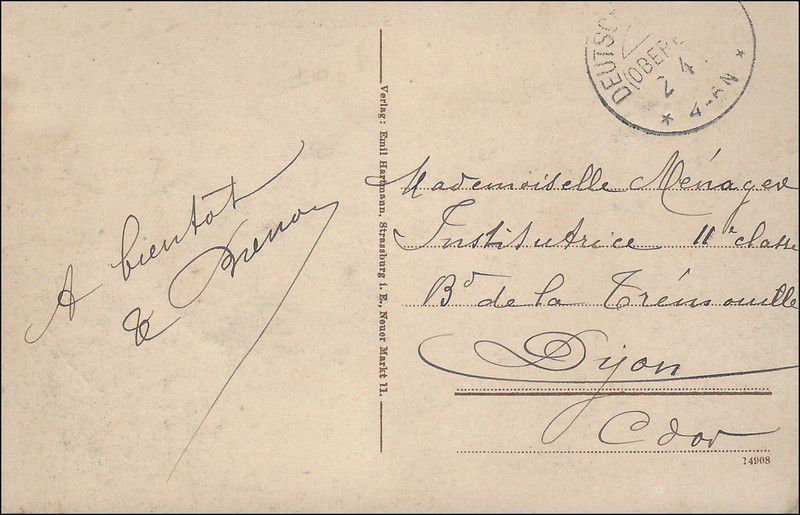 A bientôt
Verlag: Emil Hartmann, Strassburg i. E., Neuer Markt 11.
DEUTSC
(OBERE
2 4
* 4-5N *
Mademoiselle Ménager
Institutrice 11e classe
Bd de la Trémouille
Dijon
Cdor
14908